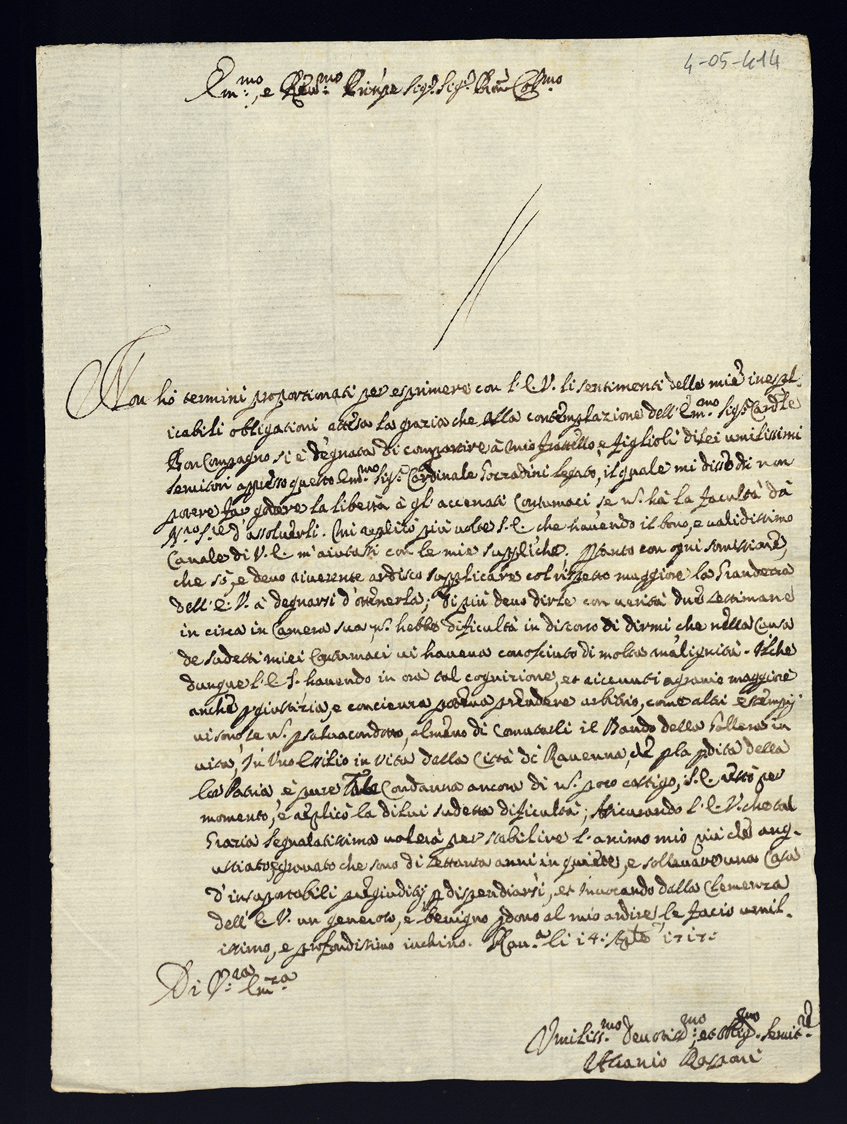 4-05-414
Em:mo, e Rev:mo Prin'pe Sig.r Sig.r P'ron Col:mo
Non hò termini proportionati per esprimere con l'E.V. li sentimenti delle mie inespl-
icabili obligationi attesa la grazia che alla contemplazione dell'Em.mo Sig.r Card.le
Bon Compagno si è degnata di compartire à mio fratello, e figlioli di lei umilissimi
servitori appresso questo Em.mo Sig.r Cardinale Gozzadini legato, il quale mi disse di non
potere far godere la libertà à gl'accenati Contumaci, se n: hà la facultà dà
d'assolverli. Mi replicò più volte S.E. che havendo il bono, e validissimo
Canale di V.E. m'aiutassi con le mie suppliche. P'tanto con ogni
che sò, e devo riverente ardisco supplicare col rispetto maggiore la Grandezza
dell'E.V. à degnarsi d'ottenerla; Di più devo dirle con verità due settimane
in circa in Camera sua n: hebbe dificultà in discorso di dirmi che nella Causa
de sudetti miei Contumaci vi haveva conosciuto di molta malignità. Il che
dunque l'E.S. havendo in ora tal cognizione, et ricevuti agravio maggiore
anche p giustizia, e concienza poteva prendere arbitrio, come altri essempij
vi sono se n: p salvacondotto, almeno di Comutarli il Bando della Gallera in
vita, in uno Essilio in vita dalla Città di Ravenna, che p la p'dita della
lor Patria è pure tale Condanna ancora di n: poco castigo, S.E. restò per
momento, e replicò la di lui sudetta dificultà; Asicurando l'E.V. che tal
Grazia segnalatissima valerà per stabilire l'animo mio più che ang-
ustiato, e gravato che sono di settanta anni in quiete, e sollevare una Casa
d'insuportabili pregiudizij p dispendiarsi, et invocando dalla Clemenza
dell'E.V. un generoso, e benigno p'dono al mio ardire le facio umil-
issimo, e profondissimo inchino. Rav.a li 14: 1717:
Di V.ra Em.za
Umiliss.mo Devotiss.mo, et Oblig.mo Servit.re
Ascanio Rasponi